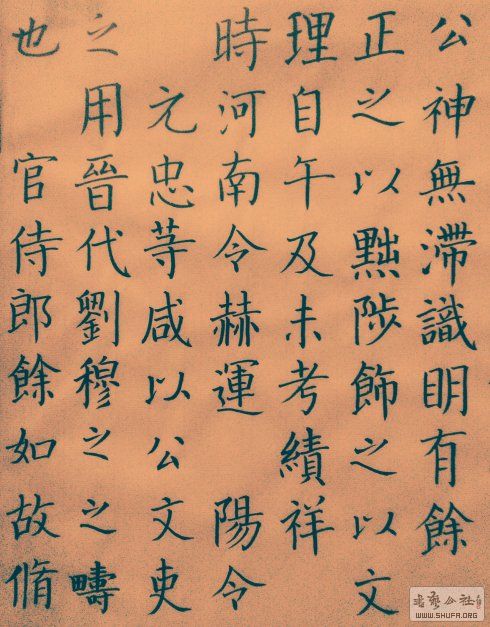 公神無滯識眀有餘
正之以黜陟飾之以文
理自午及未考績祥
時河南令赫運 陽令
元忠等咸以公文吏
之用晉代劉穆之之疇
也 官侍郎餘如故脩
书艺公社
WWW.SHUFA.ORG